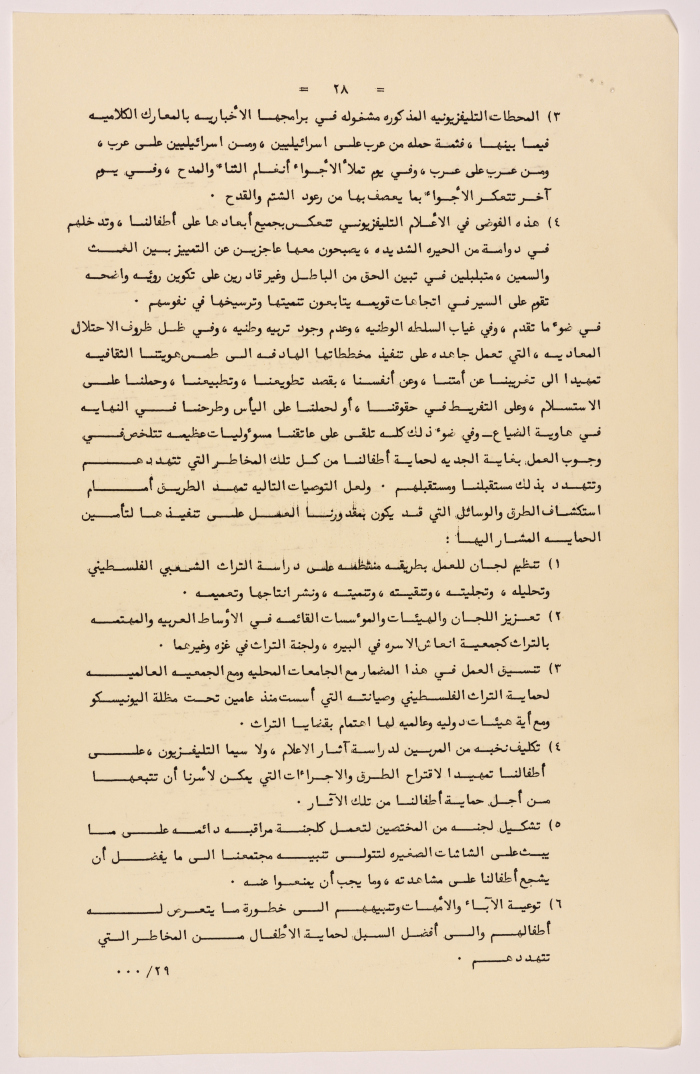 = ٢٨ =
٣) المحطات التليفزيونيه المذكوره مشغوله في برامجها الأخباريه بالمعارك الكلاميه
فيما بينها ، فثمة حمله من عرب على اسرائيليين ، ومن اسرائيليين على عرب ،
ومن عرب على عرب ، وفي يوم تملأ الأجواء أنغام الثناء والمدح ، وفي يوم
آخر تتعكر الأجواء بما يعصف بها من رعود الشتم والقدح .
٤) هذه الفوضى في الأعلام التليفزيوني تنعكس بجميع أبعادها على أطفالنا ، وتدخلهم
في دوامة من الحيره الشديده ، يصبحون معها عاجزين عن التمييز بين الغث
والسمين ، متبلبلين في تبين الحق من الباطل وغير قادرين على تكوين رؤيه واضحه
تقوم على السير في اتجاهات قويمه يتابعون تنميتها وترسيخها في نفوسهم .
في ضوء ما تقدم ، وفي غياب السلطه الوطنيه ، وعدم وجود تربيه وطنيه ، وفي ظل ظروف الاحتلال
المعاديه ، التي تعمل جاهده على تنفيذ مخططاتها الهادفه الى طمس هويتنا الثقافيه
تمهيدا الى تغريبنا عن أمتنا ، وعن أنفسنا ، بقصد تطويعنا ، وتطبيعنا ، وحملنا على
الاستسلام ، وعلى التفريط في حقوقنا ، أو لحملنا على اليأس وطرحنا في النهايه
في هاوية الضياع ــ وفي ضوء ذلك كله تلقى على عاتقنا مسؤوليات عظيمه تتلخص في
وجوب العمل بغاية الجديه لحماية أطفالنا من كل تلك المخاطر التي تتهددهم
وتتهدد بذلك مستقبلنا ومستقبلهم . ولعل التوصيات التاليه تمهد الطريق أمام
استكشاف الطرق والوسائل التي قد يكون بمقدورنا العمل على تنفيذها لتأمين
الحمايه المشار اليها :
١) تنظيم لجان للعمل بطريقه منتظمه على دراسة التراث الشعبي الفلسطيني
وتحليله ، وتجليته ، وتنقيته ، وتنميته ، ونشر انتاجها وتعميمه .
٢) تعزيز اللجان والهيئات والمؤسسات القائمه في الأوساط العربيه والمهتمه
بالتراث كجمعية انعاش الاسره في البيره ، ولجنة التراث في غزه وغيرهما .
٣) تنسيق العمل في هذا المضمار مع الجامعات المحليه ومع الجمعيه العالميه
لحماية التراث الفلسطيني وصيانته التي أسست منذ عامين تحت مظلة اليونيسكو
ومع أية هيئات دوليه وعالميه لها اهتمام بقضايا التراث .
٤) تكليف نخبه من المربين لدراسة آثار الاعلام ، ولا سيما التليفزيون ، على
أطفالنا تمهيدا لاقتراح الطرق والاجراءات التي يمكن لأسرنا أن تتبعها
من أجل حماية أطفالنا من تلك الآثار .
٥) تشكيل لجنه من المختصين لتعمل كلجنة مراقبه دائمه على ما
يبث على الشاشات الصغيره لتتولى تنبيه مجتمعنا الى ما يفضل أن
يشجع أطفالنا على مشاهدته ، وما يجب أن يمنعوا عنه .
٦) توعية الآباء والأمهات وتنبيههم الى خطورة ما يتعرض له
أطفالهم والى أفضل السبل لحماية الأطفال من المخاطر التي
تتهددهم .
٠٠٠/٢٩